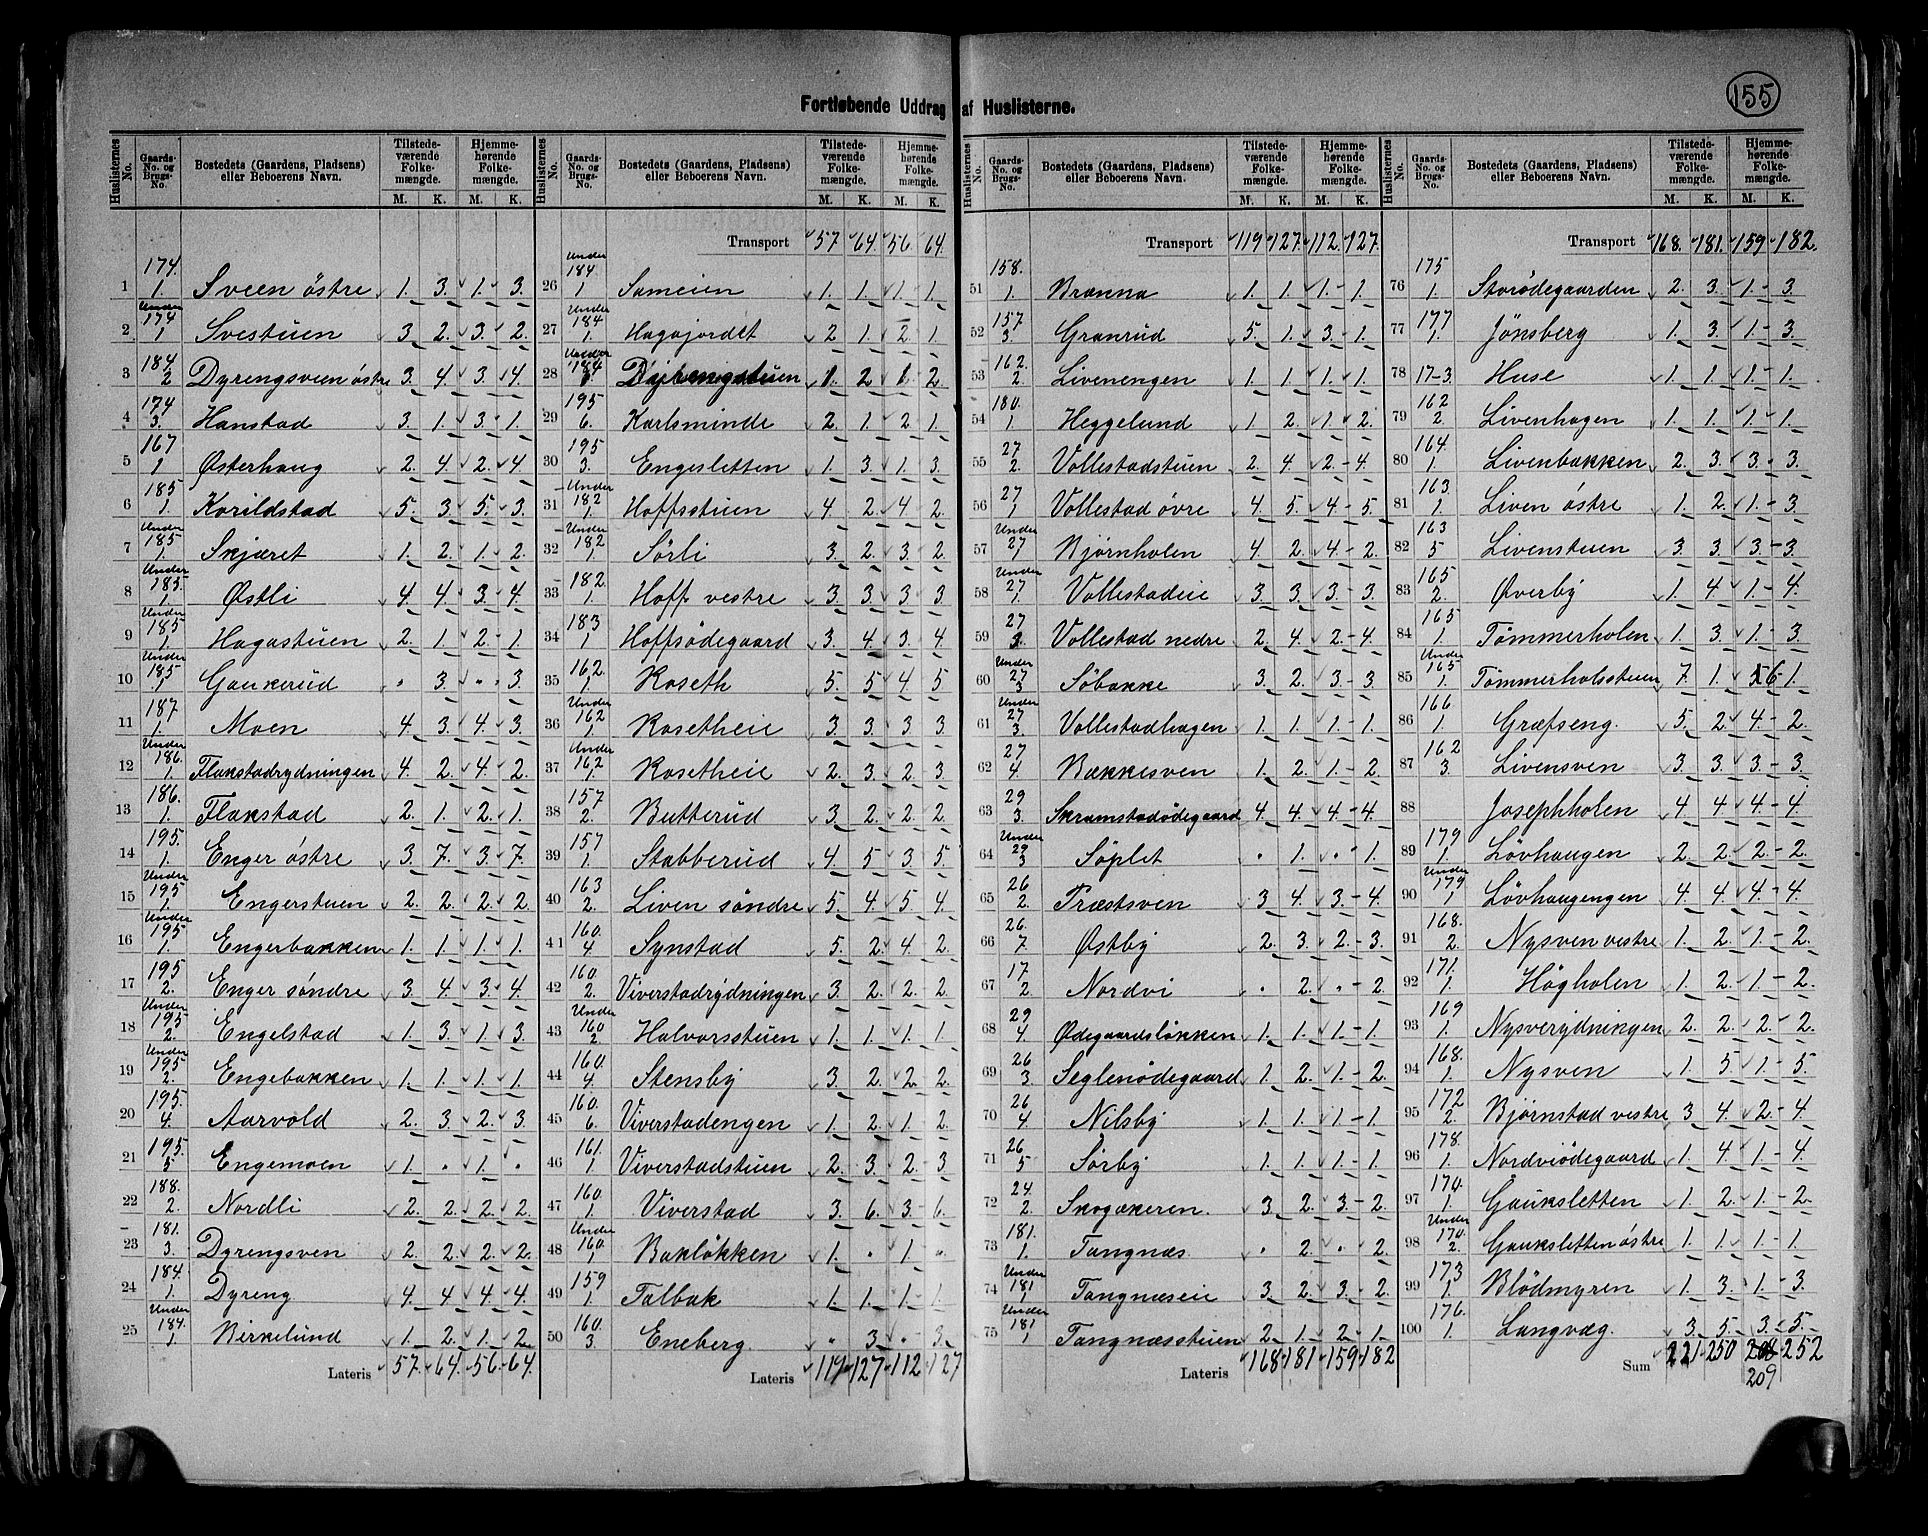 155
Fortløbende Uddrag af Huslisterne.
Huslisternes No. | Gaards-No. og Brugs-No. | Bostedets (Gaardens, Pladsens) eller Beboerens Navn. | Tilstede-værende Folke-mængde. M. K. | Hjemme-hørende Folke-mængde. M. K.
1 | 174. 1. | Sveen östre | 1. | 3. | 1. | 3.
2 | Under 174 1 | Svestuen | 3 | 2. | 3. | 2.
3 | 184 2 | Dyrengsveen östre | 3. | 4. | 3. | 4.
4 | 174 3. | Hanstad | 3. | 1. | 3. | 1.
5 | 167 1 | Østerhaug | 2. | 4. | 2. | 4.
6 | 185 1. | Korildstad | 5. | 3. | 5. | 3.
7 | Under 185 1. | Skjæret | 1. | 2. | 1. | 2.
8 | Under 185. 1 | Østli | 4. | 4. | 3. | 4.
9 | Under 185 1 | Hagastuen | 2. | 1. | 2. | 1.
10 | Under 185 1 | Gaukerud | " | 3. | " | 3.
11 | 187. 1. | Moen | 4. | 3. | 4. | 3.
12 | Under 186. 1. | Flakstadrydningen | 4. | 2. | 4. | 2.
13 | 186. 1. | Flakstad | 2. | 1. | 2. | 1.
14 | 195. 1. | Enger östre | 3. | 7. | 3. | 7.
15 | Under 195 1. | Engerstuen | 2. | 2. | 2. | 2.
16 | Under 195 1. | Engerbakken | 1. | 1. | 1. | 1.
17 | 195 2. | Enger söndre | 3. | 4. | 3. | 4.
18 | Under 195 2. | Engelstad | 1. | 3. | 1. | 3.
19 | Under 195 2. | Engebakken | 1. | 1. | 1. | 1.
20 | 195. 4. | Aarvold | 2. | 3. | 2. | 3.
21 | 195. 5 | Engemoen | 1. | " | 1. | "
22 | 188. 2. | Nordli | 2. | 2. | 2. | 2.
23 | 181. 3. | Dyrengsven | 2. | 2. | 2. | 2.
24 | 184. 1. | Dyreng | 4. | 4. | 4. | 4.
25 | Under 184. 1 | Birkelund | 1. | 2. | 1. | 2.
Lateris | 57. | 64. | 56. | 64.
Huslisternes No. | Gaards-No. og Brugs-No. | Bostedets (Gaardens, Pladsens) eller Beboerens Navn. | Tilstede-værende Folke-mængde. M. K. | Hjemme-hørende Folke-mængde. M. K.
Transport | 57. | 64. | 56. | 64.
26 | Under 184. 1 | Sameien | 1. | 1. | 1. | 1.
27 | Under 184. 1. | Hagajordet | 2 | 1. | 2. | 1.
28 | Under 184 | 1. | 2 | 1. | 2.
29 | 195 6. | Karlsminde | 2. | 1. | 2 | 1.
30 | 195 3. | Engesletten | 1. | 3. | 1. | 3.
31 | Under 182 1. | Hoffsstuen | 4 | 2. | 4 | 2.
32 | Under 182 1. | Sörli | 3. | 2. | 3. | 2
33 | 182. 1. | Hoff vestre | 3. | 3. | 3 | 3.
34 | 183 1 | Hoffsödegaard | 3. | 4. | 3. | 4
35 | 162. 1. | Roseth | 5. | 5 | 4 | 5
36 | Under 162 1. | Rosetheie | 3. | 3. | 3 | 3
37 | Under 162 1. | Rosetheie | 2. | 3. | 2. | 3.
38 | 157 2. | Butterud | 3 | 2. | 2. | 2
39 | 157 1. | Stabberud | 4. | 5 | 3 | 5.
40 | 163 2. | Liven söndre | 5. | 4. | 5. | 4.
41 | 160. 4. | Synstad | 5. | 2. | 4 | 2.
42 | 160. 2. | Viverstadrydningen | 3. | 2. | 2. | 2.
43 | Under 160 2 | Halvorsstuen | 1. | 1. | 1 | 1
44 | 160. 4. | Stensby | 3. | 2. | 2. | 2.
45 | 160. 6. | Viverstadengen | 1. | 2. | 1. | 2.
46 | 161. 1. | Viverstadstuen | 2. | 3. | 2. | 3
47 | 160. 1. | Viverstad | 3. | 6. | 3. | 6.
48 | Under 160. 1 | Bakløkken | 1. | " | 1. | "
49 | 159 1. | Talbak | 1. | 1. | 1. | 1
50 | 160. 3 | Eneberg. | " | 3. | " | 3.
Lateris | 119 | 127. | 112 | 127
Huslisternes No. | Gaards-No. og Brugs-No. | Bostedets (Gaardens, Pladsens) eller Beboerens Navn. | Tilstede-værende Folke-mængde. M. K. | Hjemme-hørende Folke-mængde. M. K.
Transport | 119 | 127. | 112. | 127.
51 | 158. 1. | Brænna | 1. | 1. | 1. | 1.
52 | 157. 3 | Granrud | 5. | 1. | 3. | 1.
53 | 162. 2. | Livenengen | 1. | 1. | 1. | 1.
54 | 180. 1. | Heggelund | 1. | 2. | 1. | 2.
55 | 27 2. | Vollestadstuen | 2. | 4. | 2. | 4.
56 | 27 1 | Vollestad övre | 4. | 5. | 4. | 5.
57 | Under 27 1 | Bjørnholen | 4. | 2. | 4. | 2.
58 | Under 27 1. | Vollestadeie | 3. | 3. | 3. | 3.
59 | 27 3. | Vollestad nedre | 2. | 4. | 2. | 4.
60 | Under 27 3 | Söbakke | 3. | 2. | 3. | 3.
61 | Under 27 3. | Vollestadhagen | 1. | 1. | 1. | 1.
62 | 27 4. | Bakkesven | 1. | 2. | 1. | 2.
63 | 29 3. | Skramstadödegaard | 4. | 4. | 4. | 4.
64 | Under 29 3 | Söplet | " | 1. | " | 1.
65 | 26 2. | Præstsven | 3 | 4. | 3. | 4.
66 | 26. 7. | Østby | 2. | 3. | 2. | 3.
67 | 17. 2. | Nordvi | " | 2. | " | 2.
68 | 29 4. | Ødegaardsløkken | 1. | 1. | 1. | 1.
69 | 26 3. | Seglenödegaard | 1. | 2. | 1. | 2.
70 | 26 4. | Nilsby | 1. | 1. | 1. | 1.
71 | 26. 5 | Sörby | 1. | 1. | 1. | 1.
72 | 24. 2. | Skogakeren. | 3. | 2. | 3. | 2.
73 | 181. 1. | Tangnæs | " | 2. | " | 2.
74 | Under 181 1 | Tangnæseie | 3. | 2. | 3. | 2.
75 | Under 181 1 | Tangnæsstuen | 2. | 1. | 2. | 1.
Lateris | 168. | 181 | 159. | 182
Huslisternes No. | Gaards-No. og Brugs-No. | Bostedets (Gaardens, Pladsens) eller Beboerens Navn. | Tilstede-værende Folke-mængde. M. K. | Hjemme-hørende Folke-mængde. M. K.
Transport | 168. | 181. | 159 | 182.
76 | 175 1. | Storödegaarden | 2. | 3. | 1. | 3.
77 | 177 1. | Jönsberg | 1. | 3. | 1. | 3.
78 | 17-3. | Huse | 1. | 1. | 1. | 1.
79 | 162 2. | Livenhagen | 1. | 1. | 1. | 1.
80 | 164. 1. | Livenbakken | 2. | 3. | 3. | 3.
81 | 163. 1. | Liven östre | 1. | 2. | 1. | 3.
82 | 163 5 | Livenstuen | 3. | 3. | 3. | 3.
83 | 165 2. | Øverby | 1. | 4 | 1. | 4.
84 | 165 1. | Tömmerholen | 1. | 3. | 1. | 3.
85 | Under 165. 1. | Tömmerholsstuen | 7. | 1. | 6. | 1.
86 | 166. 1. | Græfseng. | 5. | 2. | 4. | 2.
87 | 162 3. | Livensven | 3. | 3. | 3. | 3.
88 | Josephholen | 4. | 4. | 4. | 4.
89 | 179 1. | Lövhaugen | 2. | 2. | 2. | 2.
90 | Under 179 1 | Lövhaugengen | 4. | 4. | 4. | 4.
91 | 168. 2. | Nysven vestre | 1. | 2. | 1. | 2.
92 | 171. 1. | Högholen | 1. | 2. | 1. | 2.
93 | 169 1. | Nysverydningen | 2. | 2. | 2. | 2.
94 | 168. 1. | Nysven | 1. | 5. | 1. | 5.
95 | 172 2. | Bjørnstad vestre | 3 | 4. | 2. | 4.
96 | 178. 1. | Nordviödegaard | 1. | 4. | 1. | 4.
97 | 170. 1. | Gauksletten | 1. | 2. | 1. | 2.
98 | Under 170. 2. | Gauksletten östre | 1. | 1. | 1. | 1.
99 | 173 1. | Blödmyren | 1. | 3. | 1. | 3.
100 | 176. 1. | Langvæg. | 3. | 5. | 3. | 5.
Sum | 221. | 250 | 208 | 252
209